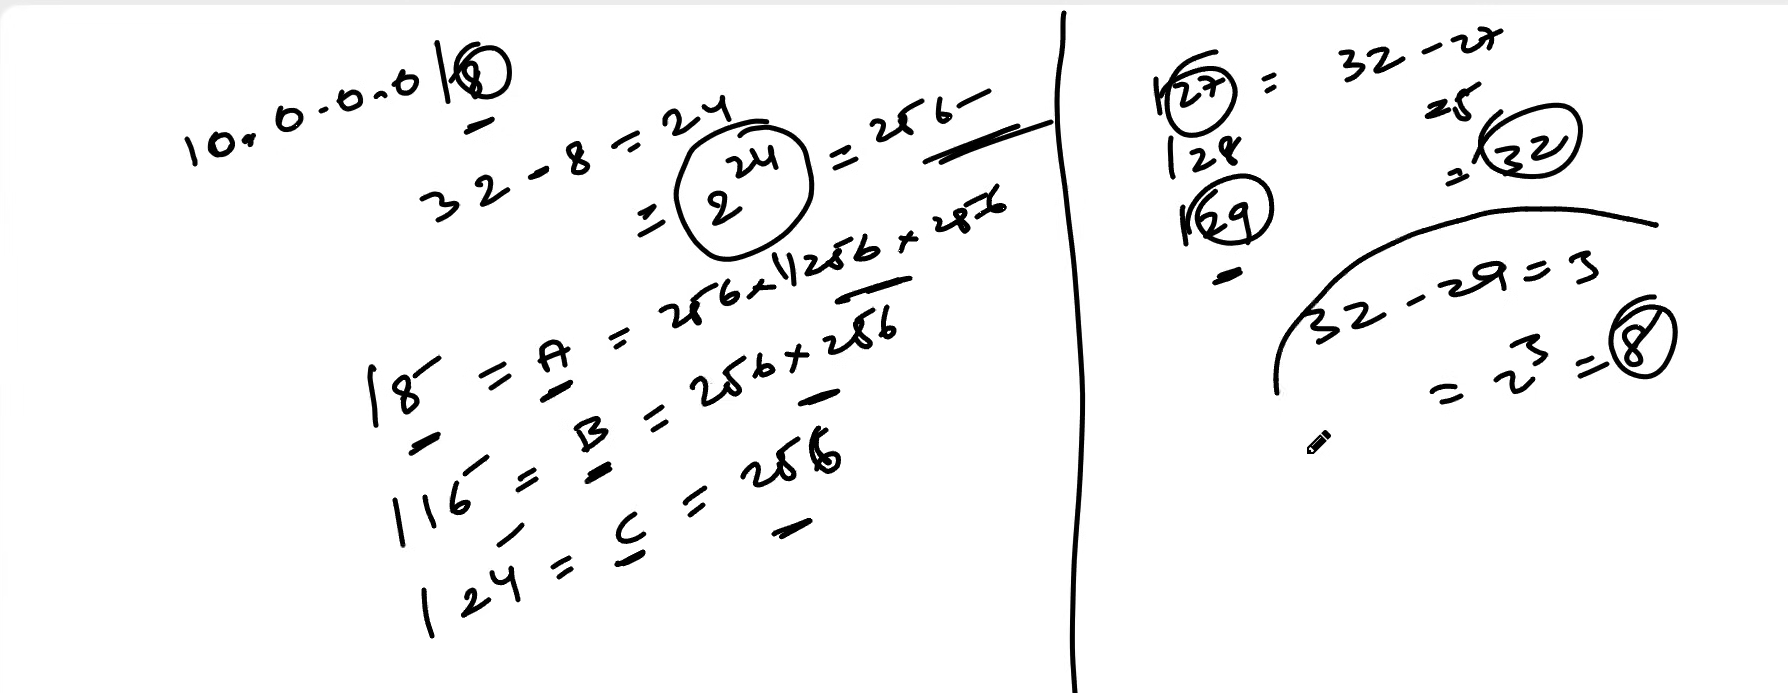 10.0.0.0/8
32-8 = 24
= 2^24 = 256-
/8 = A = 256x256x256
/16 = B = 256x256
/24 = C = 256
/27 = 32-27
=5
= 32
/28
/29
32-29 = 3
= 2^3 = 8